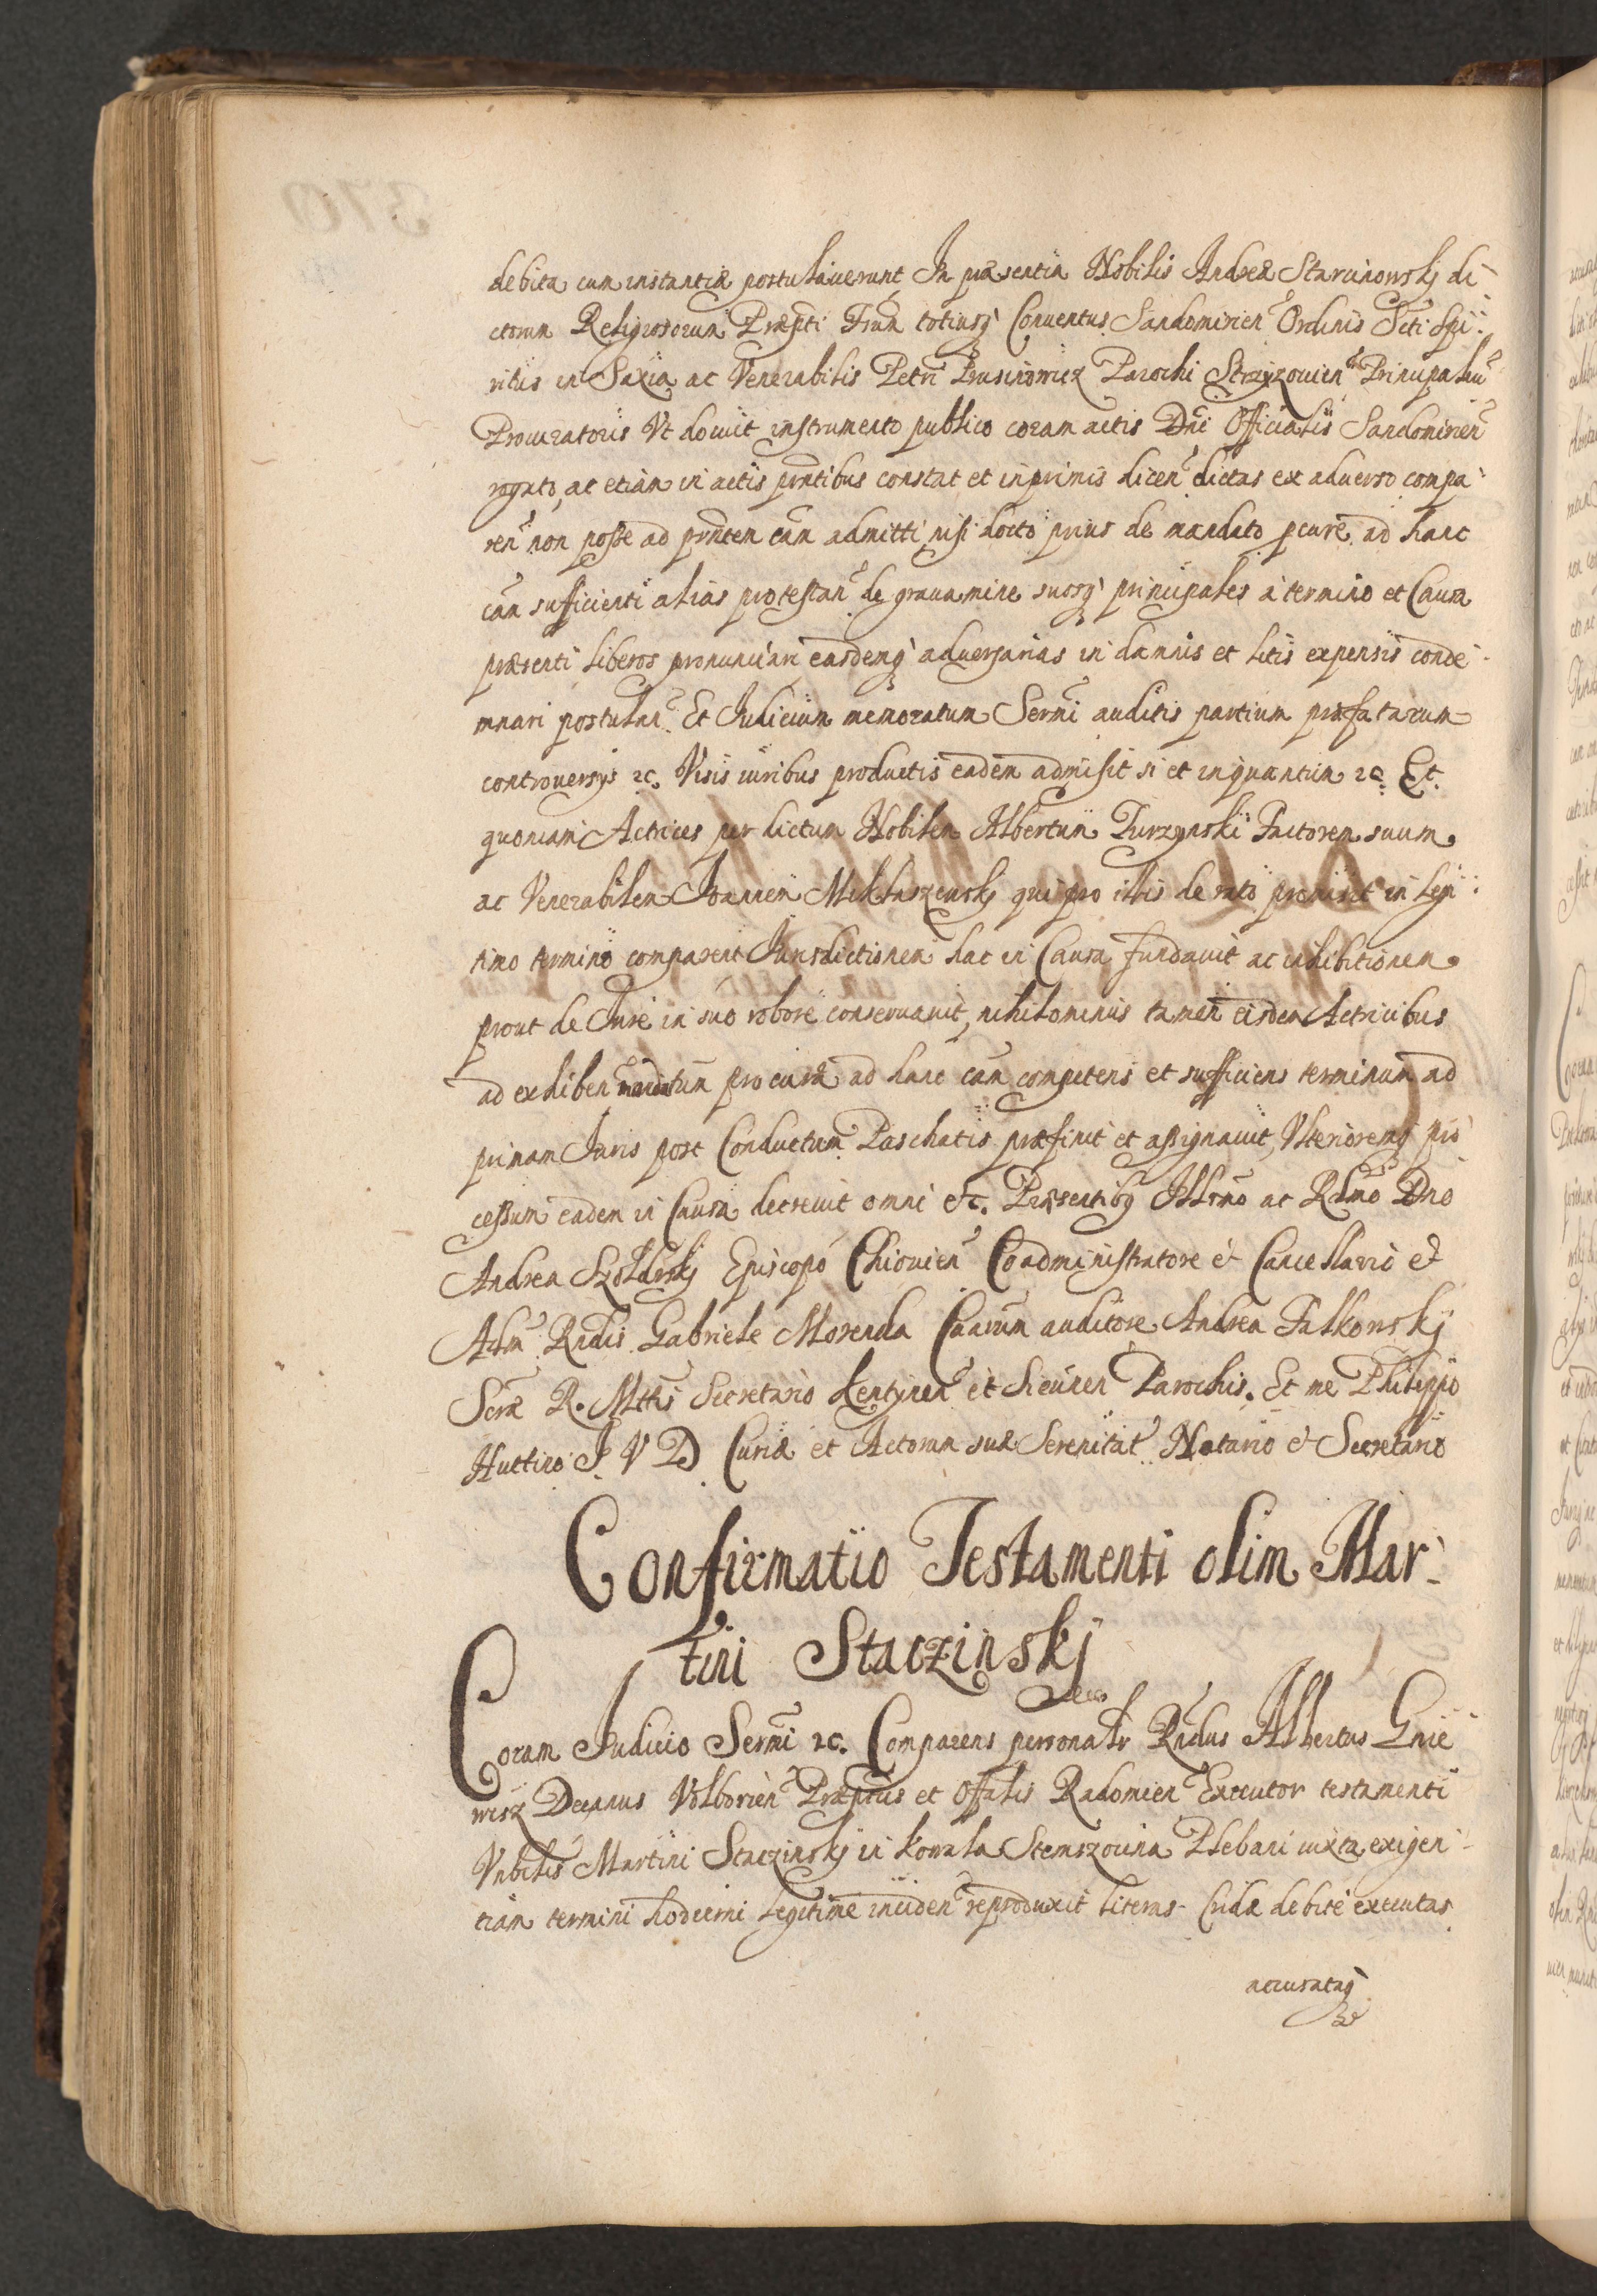 debita cum instantia postulauerunt In præsentia Nobilis Andreæ Starcinowskj di-
ctorum Religiosorum Præpti Frum totiusq Conuentus Sandomirien Ordinis Scti Spi-
ritus in Saxia ac Venerabilis Petri Prusinowicz Parochi Strzyzouien Principalium
Procuratoris Vt docuit instrumento publico coram actis Dni Officialis Sandomirien
rogato, ac etiam in actis pntibus constat et inprimis dicen dictas ex aduerso compa-
ren non posse ad pntem cam admitti nisi docto prius de mandato pcuræ ad hanc
cam sufficienti alias protestan de grauamine suosq principales a termino et Causa
præsenti liberos pronunciari easdemq aduersarias in damnis et litis expensis conde-
mnari postulan. Et Iudicium memoratum Sermi auditis partium præfatarum
controuersys 2c. Visis iuribus productis eadem admisit si et inquantum 2c. Et
quoniam Actrices per dictum Nobilem Albertum Turzynski Factorem suum
ac Venerabilem Ioannem Miklaszewskj qui pro illis de rato promisit in legi-
timo termino comparent Iurisdictionem hac in Causa fundauit ac inhibitionem
prout de Iure in suo robore conseruauit, nihilominus tamen eisdem Actricibus
ad exhiben mandatum procuræ ad hanc cam competens et sufficiens terminum ad
primam Iuris post Conductum Paschatis præfinit et assignauit, Vlterioremq pro
cessum eadem in Causa decreuit omni etc. Præsentibq Illrmo ac Rdmo Dno
Andrea Szoldrskj Episcopo Chiouien Coadministratore et Cancellario et
Adm Rndis Gabriele Morenda Caarum auditore Andrea Falkowskj
Scræ R. Mttis Secretario Kentynen et Sieunen Parochis. Et me Philippo
Huttino I V D Curiæ et Actorum suæ Serenitat Notario et Secretario
Confirmatio Testamenti olim Mar-
tini Staczinskj
Coram Iudicio Sermi 2c. Comparens personalr Rndus Albertus Gnie
wisz Decanus Volborien Præptus et Offalis Radomien Executor testamenti
Vnbilis Martini Staczinskj in Kowala Stemszocina Plebani iuxta exigen-
tiam termini hodierni legitime inciden reproduxit literas Cridæ debite executas
accusataq